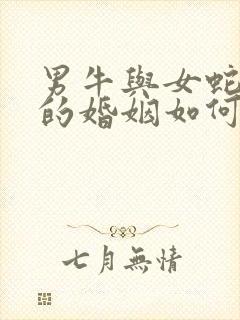 男牛與女蛇
的婚姻如何
七月無情